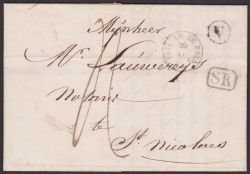 Mynheer
Mr. Lauwereys
Notaris
te
St. Nicolaes
SR